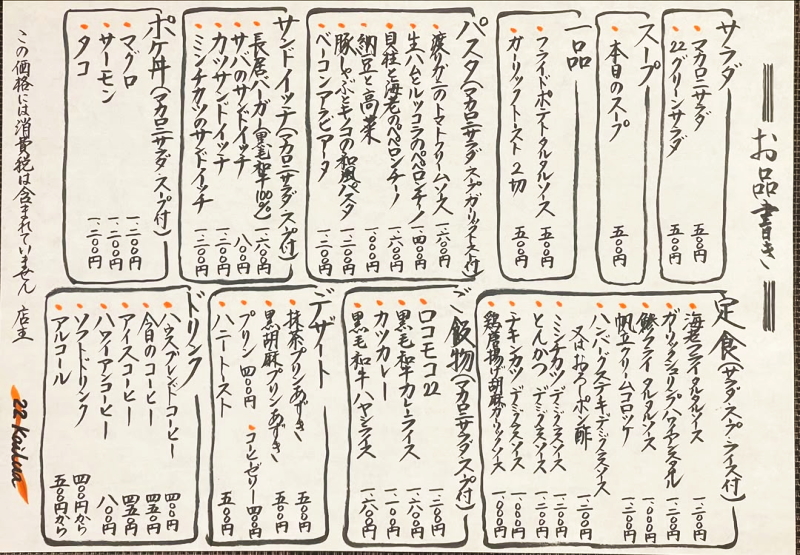 お品書き
サラダ
マカロニサラダ 五〇〇円
22グリーンサラダ 五〇〇円
スープ
本日のスープ 五〇〇円
一品
フライドポテトタルタルソース 五〇〇円
ガーリックトースト2切 五〇〇円
パスタ(マカロニサラダ スープ ガーリックトースト付)
渡りガニのトマトクリームソース 一、六〇〇円
生ハムとルッコラのペペロンチーノ 一、四〇〇円
貝柱と海老のペペロンチーノ 一、六〇〇円
納豆と高菜 一、〇〇〇円
豚しゃぶとキノコの和風パスタ 一、二〇〇円
ベーコンアラビアータ 一、二〇〇円
サンドイッチ(マカロニサラダ スープ付)
長居バーガー(黒毛和牛100%) 一、六〇〇円
サバのサンドイッチ 八〇〇円
カツサンドイッチ 一、二〇〇円
ミンチカツのサンドイッチ 一、二〇〇円
ポケ丼(マカロニサラダ・スープ付)
マグロ 一、二〇〇円
サーモン 一、二〇〇円
タコ 一、二〇〇円
この価格には消費税は含まれていません 店主
定食(サラダ・スープ・ライス付)
海老フライタルタルソース 一、二〇〇円
ガーリックシュリンプハワイアンスタイル 一、二〇〇円
鯵フライタルタルソース 一、〇〇〇円
帆立クリームコロッケ 一、二〇〇円
ハンバーグステーキデミグラスソース
又はおろしポン酢 一、二〇〇円
ミンチカツデミグラスソース 一、二〇〇円
とんかつデミグラスソース 一、二〇〇円
チキンカツデミグラスソース 一、〇〇〇円
鶏唐揚げ胡麻ガーリックソース 一、〇〇〇円
ご飯物(マカロニサラダ・スープ付)
ロコモコ22 一、二〇〇円
黒毛和牛カレーライス 一、二〇〇円
カツカレー 一、六〇〇円
黒毛和牛ハヤシライス 一、六〇〇円
デザート
抹茶プリンあずき 五〇〇円
黒胡麻プリンあずき 五〇〇円
プリン 四〇〇円 コーヒーゼリー 四〇〇円
ハニートースト 五〇〇円
ドリンク
ハウスブレンドコーヒー 四〇〇円
今日のコーヒー 四五〇円
アイスコーヒー 四五〇円
ハワイアンコーヒー 八〇〇円
ソフトドリンク 四〇〇円から
アルコール 五〇〇円から
22 Kailua